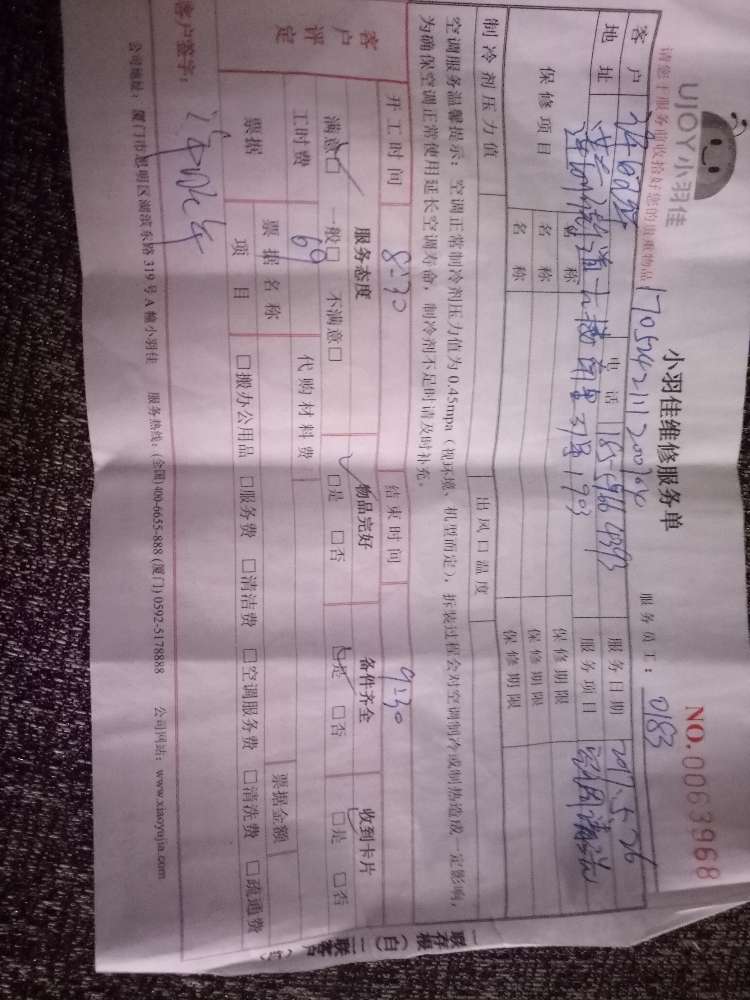 UJOY小羽佳
小羽佳维修服务单
NO.0063968
请您于服务前收拾好您的贵重物品
服务员工：0183
客户
电话
服务日期 2017.5.26
地址
服务项目 空调清洗
保修项目
名称
保修期限
名称
保修期限
名称
保修期限
制冷剂压力值
出风口温度
空调服务温馨提示：空调正常制冷剂压力值为0.45mpa（视环境、机型而定），拆装过程会对空调制冷或制热造成一定影响，
为确保空调正常使用延长空调寿命，制冷剂不足时请及时补充。
开工时间 8:30
结束时间 9:30
客户评定
服务态度
物品完好
备件齐全
收到卡片
满意□ 一般□ 不满意□
□是 □否
□是 □否
□是 □否
工时费 69
代购材料费
票据
票据名称
票据金额
项目
□搬办公用品 □服务费 □清洁费 □空调服务费 □清洗费 □疏通费
客户签字：
公司地址：厦门市思明区湖滨东路319号A幢小羽佳 服务热线：(全国)400-6655-888 (厦门) 0592-5178888 公司网站：www.xiaoyujia.com
一联存根（白）二联客户